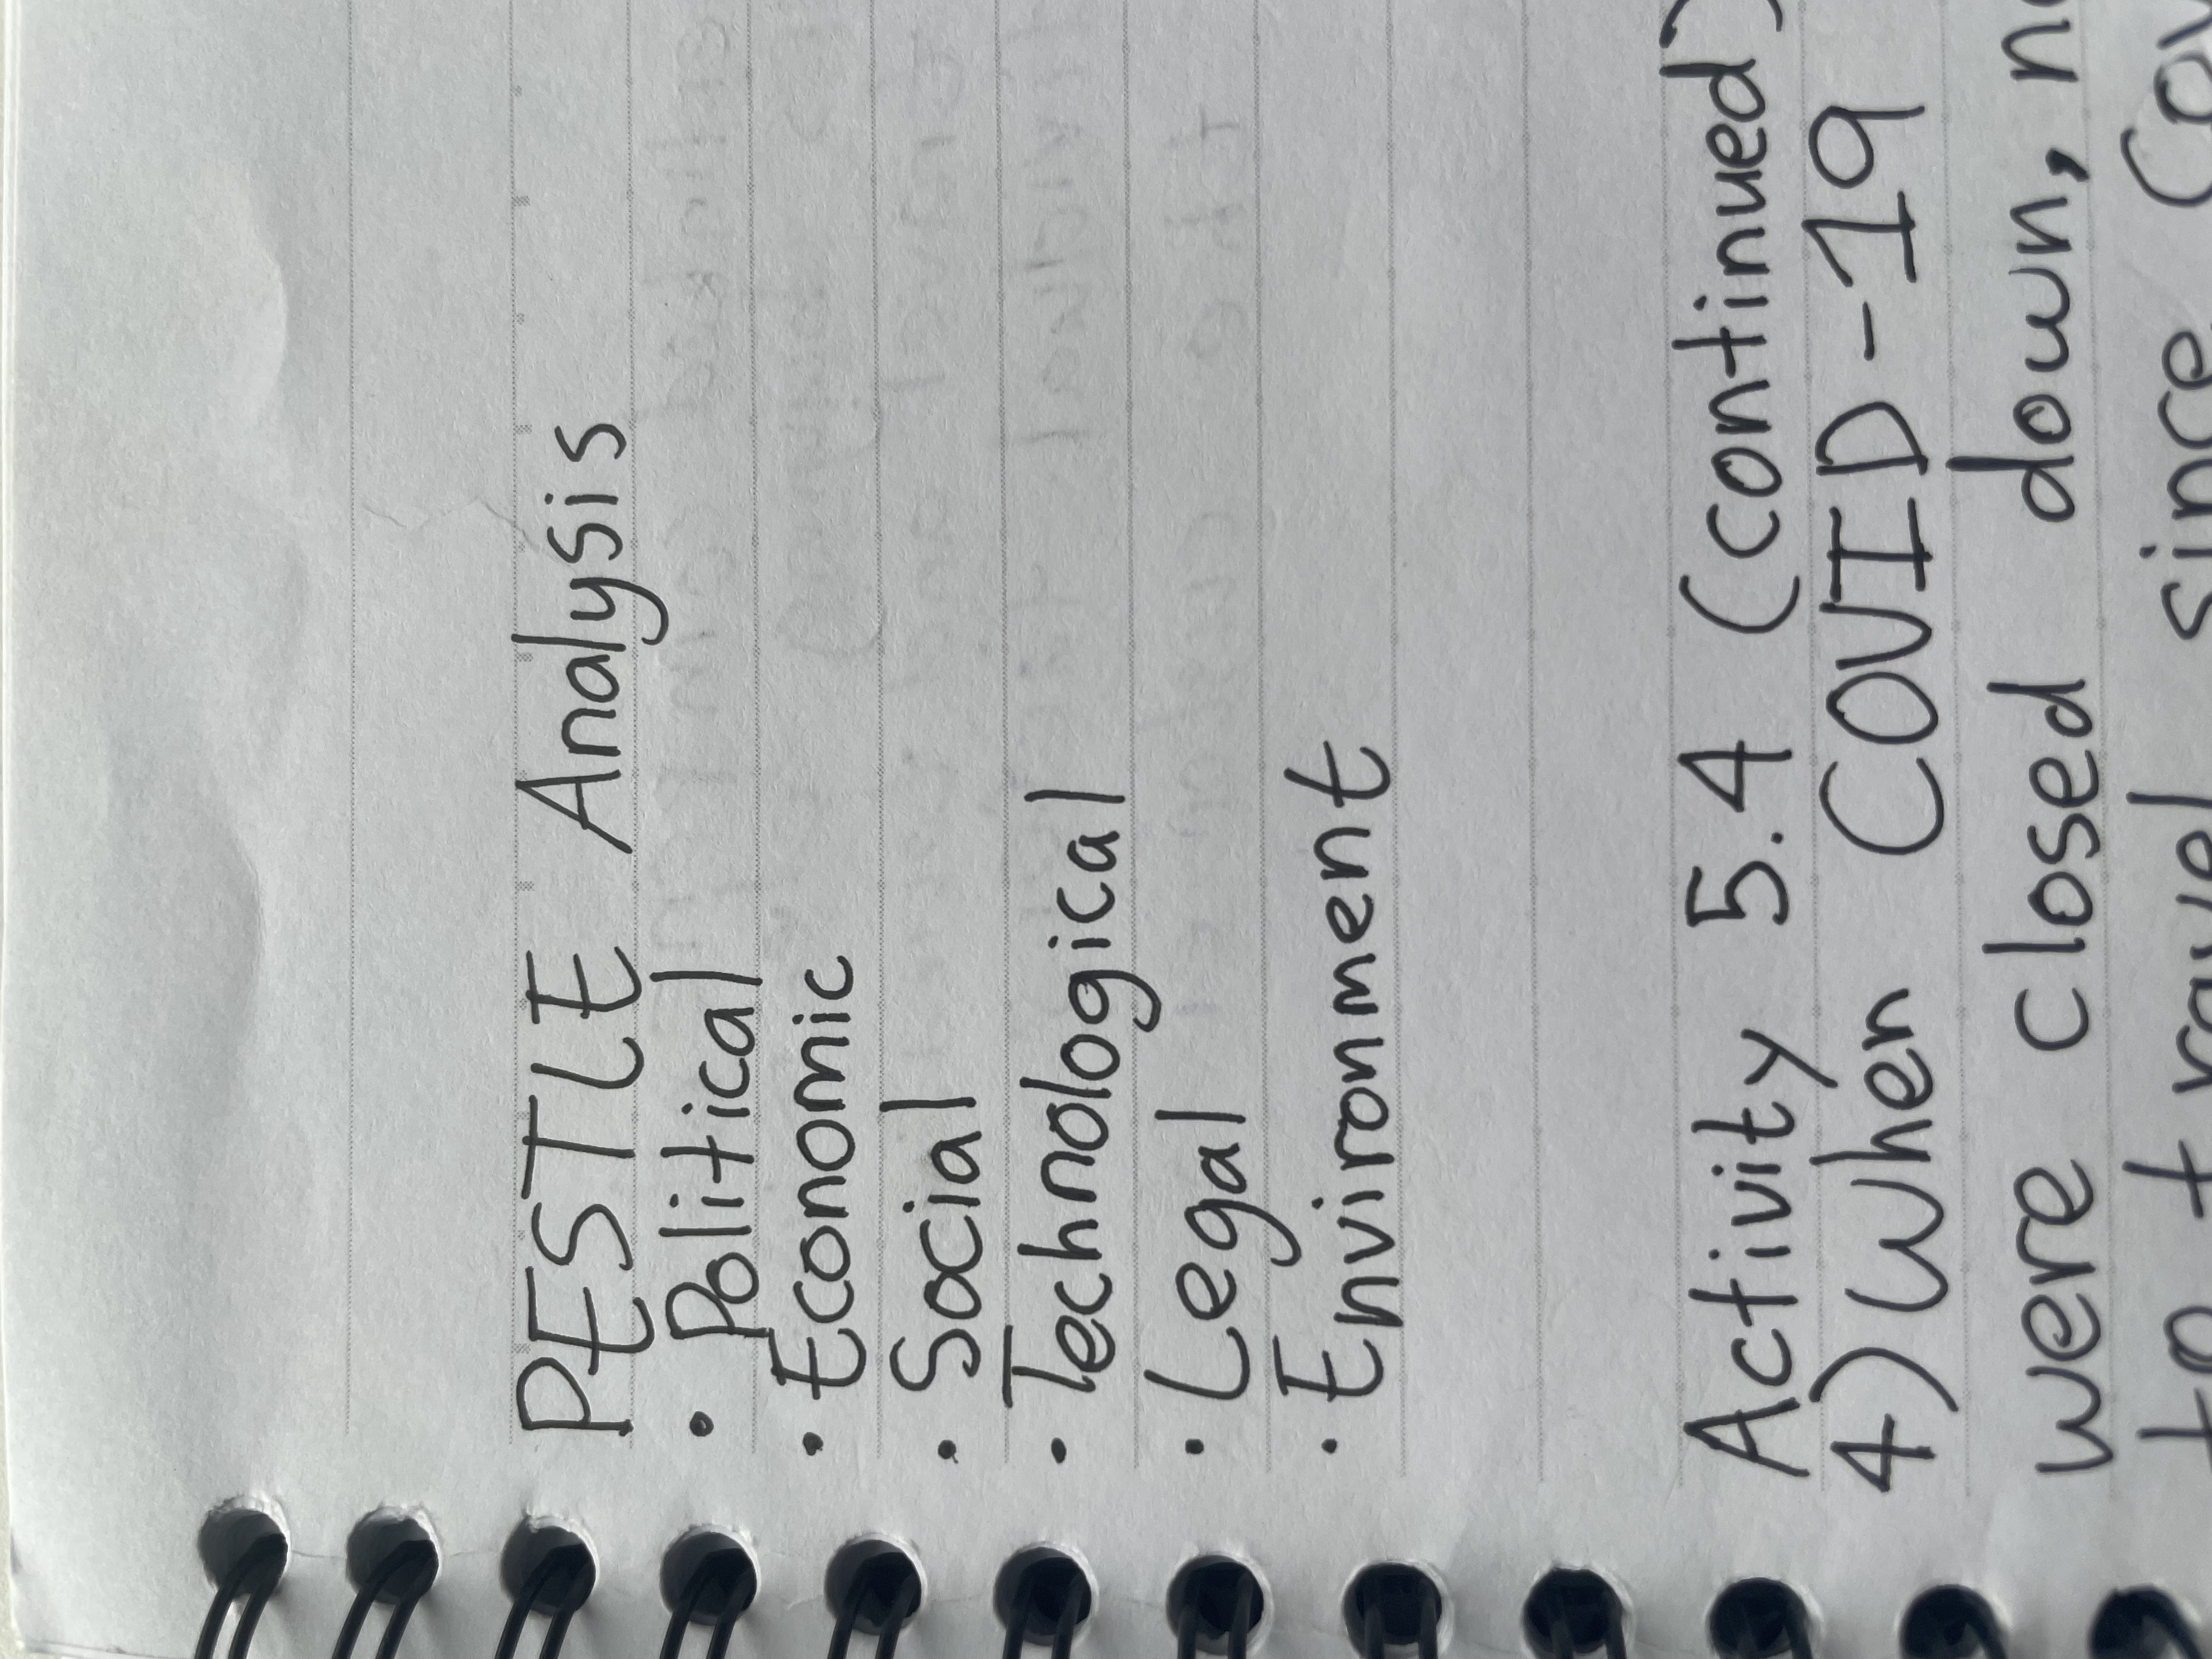 PESTLE Analysis
• Political
• Economic
• Social
• Technological
• Legal
• Environment
Activity 5.4 (continued)
4) When COVID-19
were closed down,
to travel since